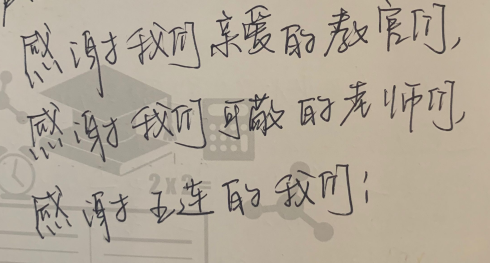 感谢我们亲爱的教官们,
感谢我们可敬的老师们,
感谢五连的我们!
2×2=